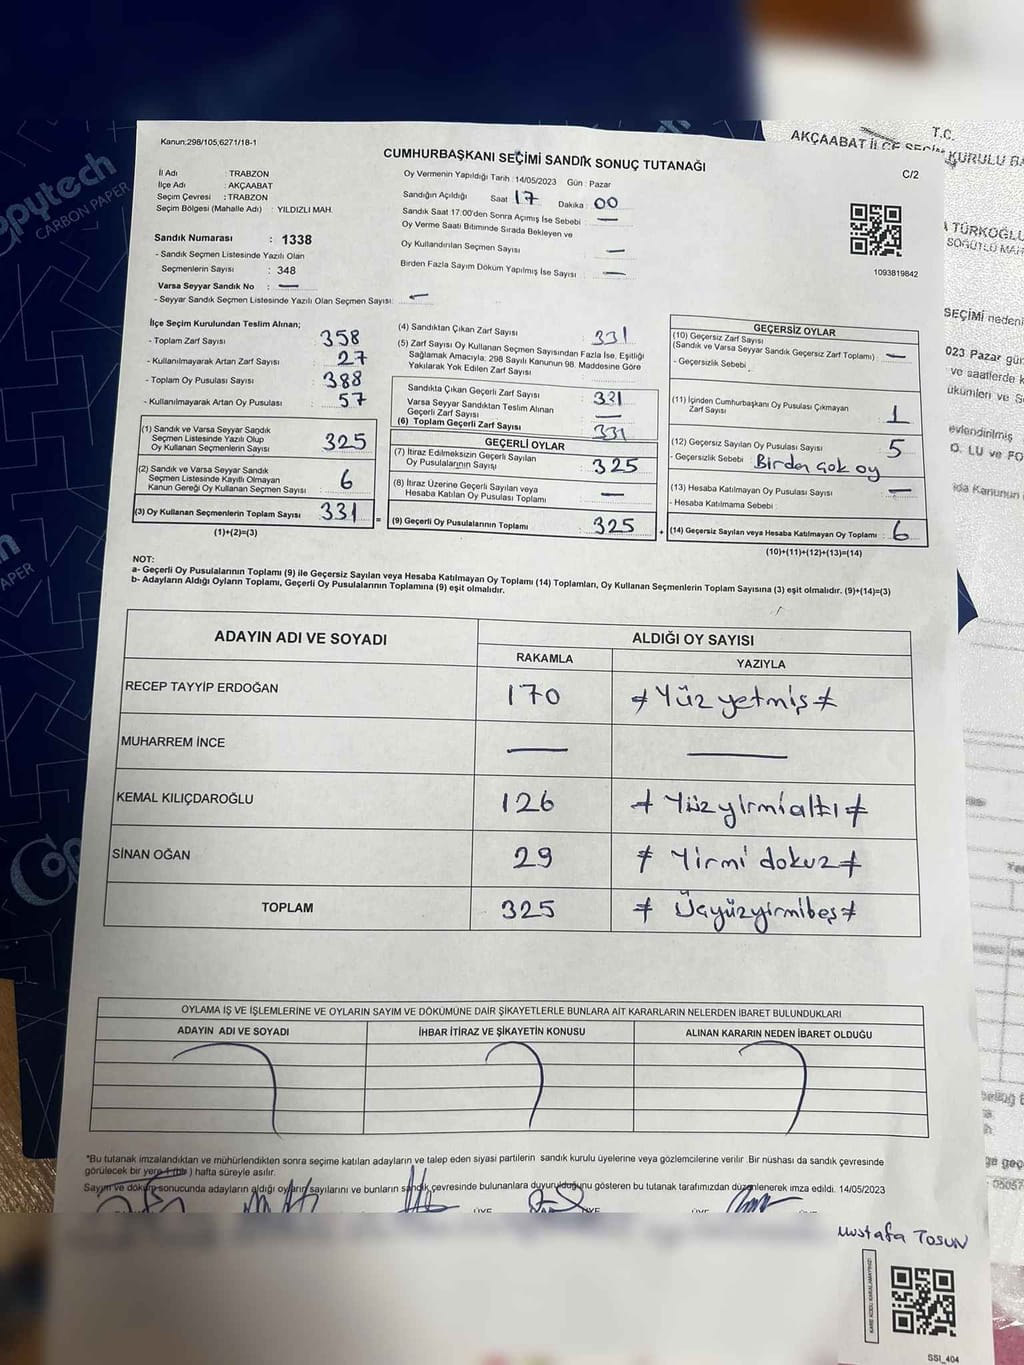 Copytech
CARBON PAPER
T.C.
AKÇAABAT İLÇE SEÇİM KURULU
Kanun:298/105,6271/18-1
CUMHURBAŞKANI SEÇİMİ SANDIK SONUÇ TUTANAĞI
C/2
İl Adı : TRABZON
İlçe Adı : AKÇAABAT
Seçim Çevresi : TRABZON
Seçim Bölgesi (Mahalle Adı) : YILDIZLI MAH.
Sandık Numarası : 1338
- Sandık Seçmen Listesinde Yazılı Olan
Seçmenlerin Sayısı : 348
Varsa Seyyar Sandık No : —
- Seyyar Sandık Seçmen Listesinde Yazılı Olan Seçmen Sayısı: —
Oy Vermenin Yapıldığı Tarih : 14/05/2023 Gün : Pazar
Sandığın Açıldığı Saat 17 Dakika : 00
Sandık Saat 17:00'den Sonra Açımış İse Sebebi : —
Oy Verme Saati Bitiminde Sırada Bekleyen ve
Oy Kullandırılan Seçmen Sayısı : —
Birden Fazla Sayım Döküm Yapılmış İse Sayısı : —
1093819842
İlçe Seçim Kurulundan Teslim Alınan;
- Toplam Zarf Sayısı : 358
- Kullanılmayarak Artan Zarf Sayısı : 27
- Toplam Oy Pusulası Sayısı : 388
- Kullanılmayarak Artan Oy Pusulası : 57
(1) Sandık ve Varsa Seyyar Sandık
Seçmen Listesinde Yazılı Olup
Oy Kullanan Seçmenlerin Sayısı : 325
(2) Sandık ve Varsa Seyyar Sandık
Seçmen Listesinde Kayıtlı Olmayan
Kanun Gereği Oy Kullanan Seçmen Sayısı : 6
(3) Oy Kullanan Seçmenlerin Toplam Sayısı : 331
(1)+(2)=(3)
(4) Sandıktan Çıkan Zarf Sayısı : 331
(5) Zarf Sayısı Oy Kullanan Seçmen Sayısından Fazla İse, Eşitliği
Sağlamak Amacıyla; 298 Sayılı Kanunun 98. Maddesine Göre
Yakılarak Yok Edilen Zarf Sayısı :
Sandıkta Çıkan Geçerli Zarf Sayısı : 331
Varsa Seyyar Sandıktan Teslim Alınan
Geçerli Zarf Sayısı : —
(6) Toplam Geçerli Zarf Sayısı : 331
GEÇERLİ OYLAR
(7) İtiraz Edilmeksizin Geçerli Sayılan
Oy Pusulalarının Sayısı : 325
(8) İtiraz Üzerine Geçerli Sayılan veya
Hesaba Katılan Oy Pusulası Toplamı : —
(9) Geçerli Oy Pusulalarının Toplamı : 325
GEÇERSİZ OYLAR
(10) Geçersiz Zarf Sayısı
(Sandık ve Varsa Seyyar Sandık Geçersiz Zarf Toplamı) : —
- Geçersizlik Sebebi :
(11) İçinden Cumhurbaşkanı Oy Pusulası Çıkmayan
Zarf Sayısı : 1
(12) Geçersiz Sayılan Oy Pusulası Sayısı : 5
- Geçersizlik Sebebi : Birden çok oy
(13) Hesaba Katılmayan Oy Pusulası Sayısı : —
- Hesaba Katılmama Sebebi :
(14) Geçersiz Sayılan veya Hesaba Katılmayan Oy Toplamı : 6
(10)+(11)+(12)+(13)=(14)
NOT:
a- Geçerli Oy Pusulalarının Toplamı (9) ile Geçersiz Sayılan veya Hesaba Katılmayan Oy Toplamı (14) Toplamları, Oy Kullanan Seçmenlerin Toplam Sayısına (3) eşit olmalıdır. (9)+(14)=(3)
b- Adayların Aldığı Oyların Toplamı, Geçerli Oy Pusulalarının Toplamına (9) eşit olmalıdır.
ADAYIN ADI VE SOYADI ALDIĞI OY SAYISI
RAKAMLA YAZIYLA
RECEP TAYYİP ERDOĞAN 170 ≠ Yüz yetmiş ≠
MUHARREM İNCE — —
KEMAL KILIÇDAROĞLU 126 ≠ Yüz yirmi altı ≠
SİNAN OĞAN 29 ≠ Yirmi dokuz ≠
TOPLAM 325 ≠ Üçyüzyirmibeş ≠
OYLAMA İŞ VE İŞLEMLERİNE VE OYLARIN SAYIM VE DÖKÜMÜNE DAİR ŞİKAYETLERLE BUNLARA AİT KARARLARIN NELERDEN İBARET BULUNDUKLARI
ADAYIN ADI VE SOYADI İHBAR İTİRAZ VE ŞİKAYETİN KONUSU ALINAN KARARIN NEDEN İBARET OLDUĞU
*Bu tutanak imzalandıktan ve mühürlendikten sonra seçime katılan adayların ve talep eden siyasi partilerin sandık kurulu üyelerine veya gözlemcilerine verilir. Bir nüshası da sandık çevresinde
görülecek bir yere 1 (bir) hafta süreyle asılır.
Sayım ve döküm sonucunda adayların aldığı oyların sayılarını ve bunların sandık çevresinde bulunanlara duyurulduğunu gösteren bu tutanak tarafımızdan düzenlenerek imza edildi. 14/05/2023
Mustafa TOSUN
SSI_404